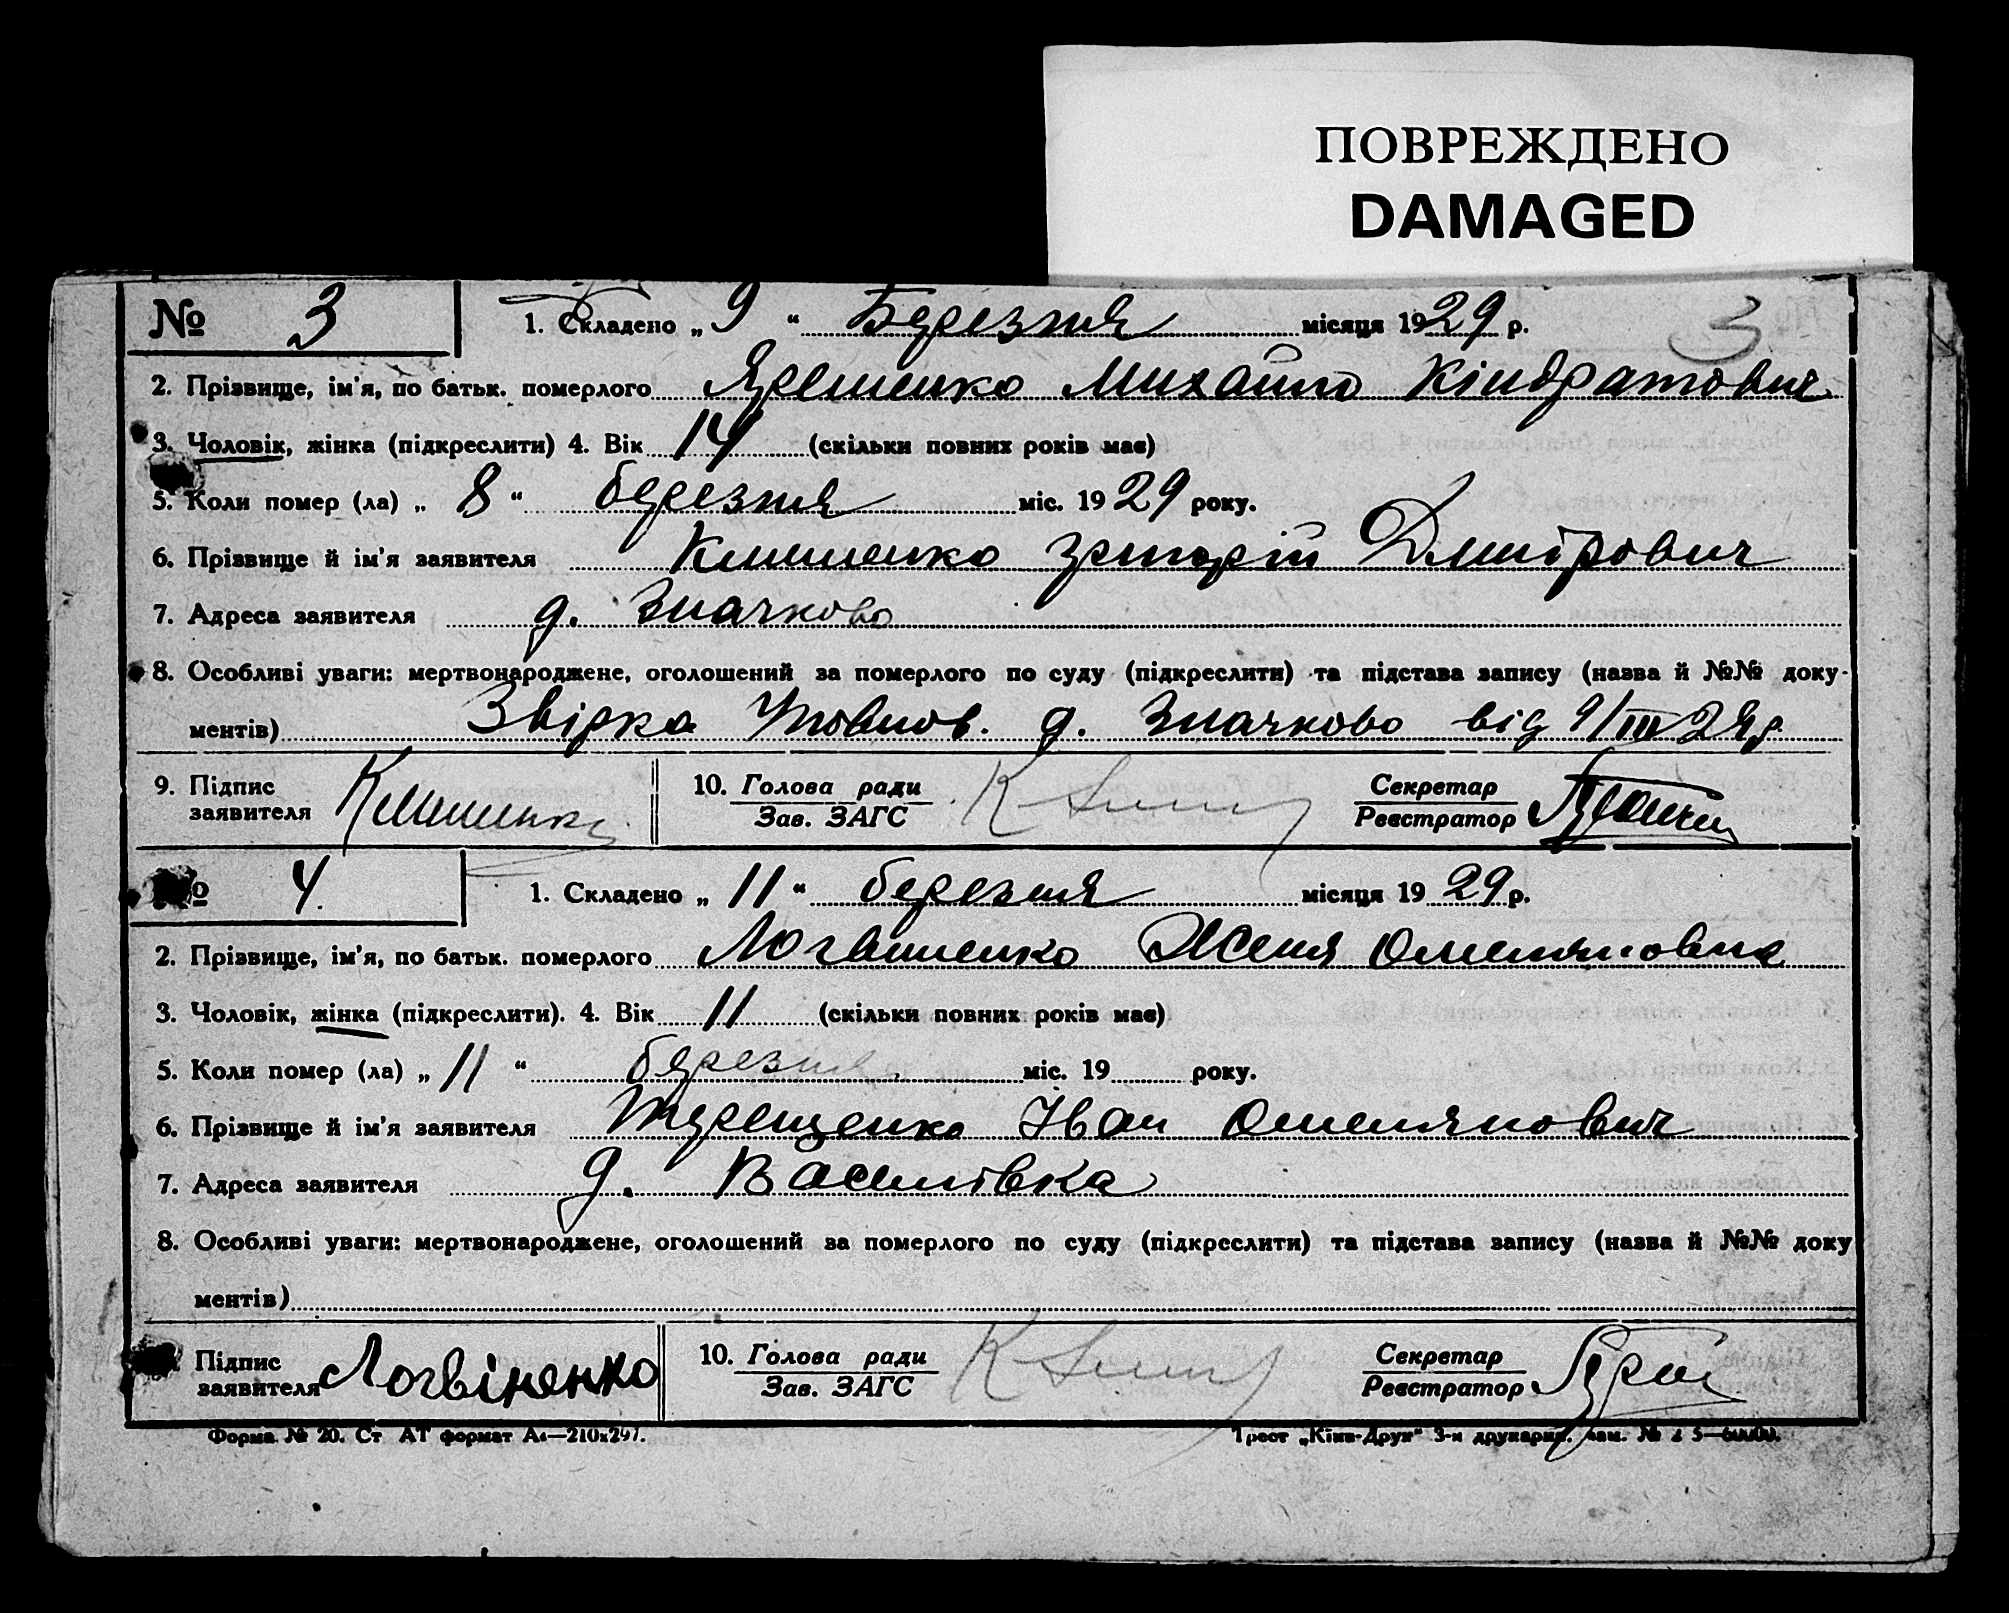 ПОВРЕЖДЕНО
DAMAGED
№ 3 1. Складено „ 9 “ Березня місяця 1929 р. 3
2. Прізвище, ім'я, по батьк. померлого Ярешенко Михайло Кіндратович
3. Чоловік, жінка (підкреслити) 4. Вік 14 (скільки повних років має)
5. Коли помер (ла) „ 8 “ березня міс. 1929 року.
6. Прізвище й ім'я заявителя Клименко Григорій Дмитрович
7. Адреса заявителя д. Значково
8. Особливі уваги: мертвонароджене, оголошений за померлого по суду (підкреслити) та підстава запису (назва й №№ доку-
ментів) Звірка Уповнов. д. Значково від 9/III 29р
9. Підпис заявителя Клименко 10. Голова ради Зав. ЗАГС Секретар Реєстратор
№ 4. 1. Складено „ 11 “ березня місяця 1929 р.
2. Прізвище, ім'я, по батьк. померлого Женя Омеляновна
3. Чоловік, жінка (підкреслити). 4. Вік 11 (скільки повних років має)
5. Коли помер (ла) „ 11 “ березня міс. 19 року.
6. Прізвище й ім'я заявителя Терещенко Іван Омелянович
7. Адреса заявителя д. Василівка
8. Особливі уваги: мертвонароджене, оголошений за померлого по суду (підкреслити) та підстава запису (назва й №№ доку
ментів)
Підпис заявителя Логвіненко 10. Голова ради Зав. ЗАГС Секретар Реєстратор
Форма № 20. Ст АТ формат А4—210x297. Трест „Київ-Друк“ 3-я друкарня.